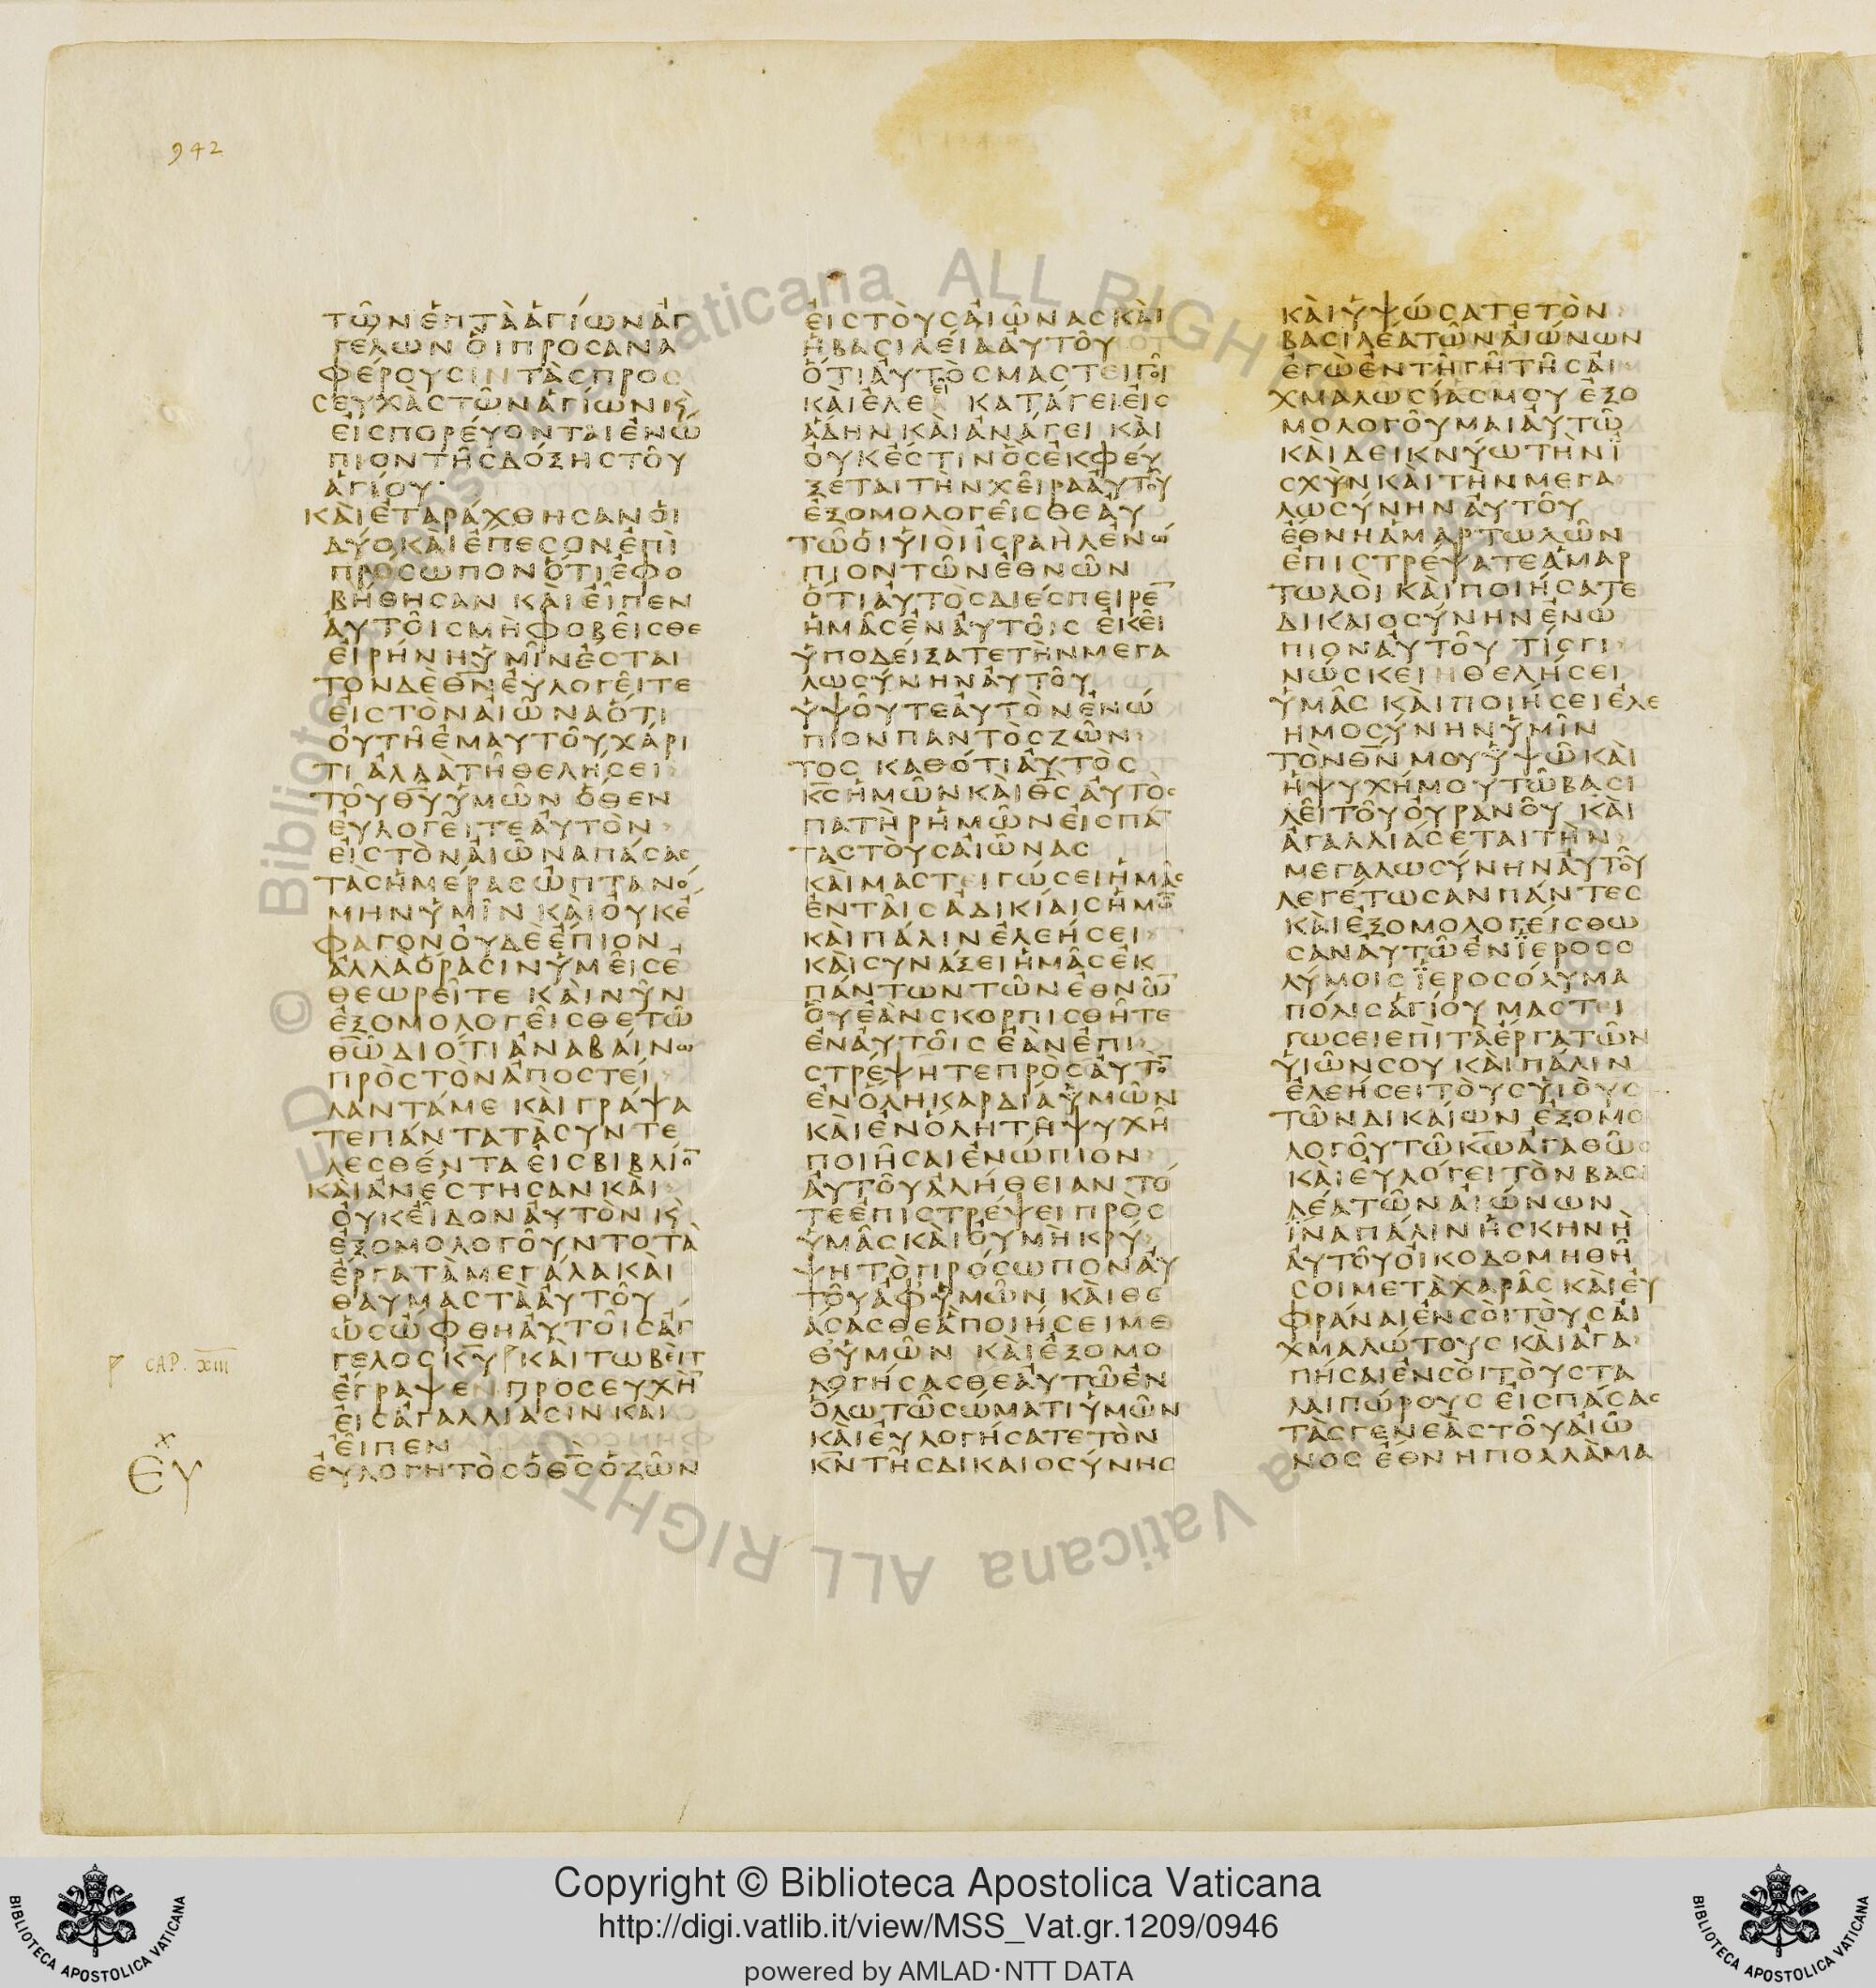 942
τῶν ἑπτὰ ἁγίων ἀγ
γέλων οἳ προσανα
φέρουσιν τὰς προσ
σευχὰς τῶν ἁγίων κ
εἰσπορεύονται ἐνώ
πιον τῆς δόξης τοῦ
ἁγίου·
καὶ ἐταράχθησαν οἱ
δύο καὶ ἔπεσον ἐπὶ
πρόσωπον ὅτι ἐφο
βήθησαν καὶ εἶπεν
αὐτοῖς μὴ φοβεῖσθε
εἰρήνη ὑμῖν ἔσται
τον δε θν εὐλογεῖτε
εἰς τὸν αἰῶνα ὅτι
οὐ τῆ ἐμαυτοῦ χάρι
τι ἀλλα τῆ θελήσει
τοῦ θυ ὑμῶν ὅθεν
εὐλογεῖτε αὐτὸν
εἰς τὸν αἰῶνα πάσας
τὰς ἡμέρας ὠπτανό
μην ὑμῖν καὶ οὐκ ἔ
φαγον οὐδὲ ἔπιον
ἀλλα ὅρασιν ὑμεῖς ἐ
θεωρεῖτε καὶ νῦν
ἐξομολογεῖσθε τῶ
θῶ διότι ἀναβαίνω
πρὸς τὸν ἀποστεί
λαντά με καὶ γράψα
τε πάντα τὰ συντε
λεσθέντα εἰς βιβλίο̅
καὶ ἀνέστησαν καὶ
οὐκ εἶδον αὐτὸν κ
ἐξομολογοῦντο τὰ
ἔργα τὰ μεγάλα καὶ
θαυμαστὰ αὐτοῦ
ὡς ὤφθη αὐτοῖς ἄγ
γελος κυ καὶ τωβεὶτ
ἔγραψεν προσευχὴ̅
εἰς ἀγαλλίασιν καὶ
εἶπεν
εὐλογητὸς ὁ θς ὁ ζῶν
CAP. XIII
εὐ
εἰς τοὺς αἰῶνας καὶ
ἡ βασιλεία αὐτοῦ
ὅτι αὐτὸς μαστειγοῖ
καὶ ἐλεεῖ κατάγει εἰς
ἅδην καὶ ἀνάγει καὶ
οὐκ ἔστιν ὃς ἐκφεύ
ξεται τὴν χεῖρα αὐτοῦ
ἐξομολογεῖσθε αὐ
τῶ οἱ υἱοὶ ἰσραὴλ ἐνώ
πιον τῶν ἐθνῶν
ὅτι αὐτὸς διέσπειρε̅
ἡμᾶς ἐν αὐτοῖς ἐκεῖ
ὑποδείξατε τὴν μεγα
λωσύνην αὐτοῦ
ὑψοῦτε αὐτὸν ἐνώ
πιον παντὸς ζῶν
τος καθότι αὐτὸς
κς ἡμῶν καὶ θς αὐτὸς
πατὴρ ἡμῶν εἰς πά̅
τας τοὺς αἰῶνας
καὶ μαστειγώσει ἡμᾶς
ἐν ταῖς ἀδικίαις ἡμῶ̅
καὶ πάλιν ἐλεήσει
καὶ συνάξει ἡμᾶς ἐκ
πάντων τῶν ἐθνῶ̅
οὗ ἐὰν σκορπισθῆτε
ἐν αὐτοῖς ἐὰν ἐπι
στρέψητε πρὸς αὐτὸ̅
ἐν ὅλη καρδία ὑμῶν
καὶ ἐν ὅλη τῆ ψυχῆ
ποιῆσαι ἐνώπιον
αὐτοῦ ἀλήθειαν τό
τε ἐπιστρέψει πρὸς
ὑμᾶς καὶ οὐ μὴ κρύ
ψη τὸ πρόσωπον αὐ
τοῦ ἀφ ὑμῶν καὶ θε
άσασθε ἃ ποιήσει με
θ ὑμῶν καὶ ἐξομο
λογήσασθε αὐτῶ ἐν
ὅλω τῶ σώματι ὑμῶν
καὶ εὐλογήσατε τὸν
κν τῆς δικαιοσύνης
καὶ ὑψώσατε τὸν
βασιλέα τῶν αἰώνων
ἐγὼ ἐν τῆ γῆ τῆς αἰ
χμαλωσίας μου ἐξο
μολογοῦμαι αὐτῶ
καὶ δεικνύω τὴν ἰ
σχὺν καὶ τὴν μεγα
λωσύνην αὐτοῦ
ἔθνη ἁμαρτωλῶν
ἐπιστρέψατε ἁμαρ
τωλοὶ καὶ ποιήσατε
δικαιοσύνην ἐνώ
πιον αὐτοῦ τίς γι
νώσκει η θελήσει
ὑμᾶς καὶ ποιήσει ἐλε
ημοσύνην ὑμῖν
τὸν θν μου ὑψῶ καὶ
ἡ ψυχή μου τῶ βασι
λεῖ τοῦ οὐρανοῦ καὶ
ἀγαλλιάσεται τὴν
μεγαλωσύνην αὐτοῦ
λεγέτωσαν πάντες
καὶ ἐξομολογείσθω
σαν αὐτῶ ἐν ἱεροσο
λύμοις ἱεροσόλυμα
πόλις ἁγίου μαστει
γωσει ἐπὶ τὰ ἔργα τῶν
υἱῶν σου καὶ πάλιν
ἐλεήσει τοὺς υἱοὺς
τῶν δικαίων ἐξομο
λογοῦ τῶ κω ἀγαθῶς
καὶ εὐλόγει τὸν βασι
λέα τῶν αἰώνων
ἵνα πάλιν ἡ σκηνὴ
αὐτοῦ οἰκοδομηθῆ
σοι μετὰ χαρᾶς καὶ εὐ
φράναι ἐν σοὶ τοὺς αἰ
χμαλώτους καὶ ἀγα
πήσαι ἐν σοὶ τοὺς τα
λαιπώρους εἰς πάσας
τὰς γενεὰς τοῦ αἰῶ
νος ἔθνη πολλὰ μα
Copyright © Biblioteca Apostolica Vaticana
http://digi.vatlib.it/view/MSS_Vat.gr.1209/0946
powered by AMLAD·NTT DATA
BIBLIOTECA APOSTOLICA VATICANA
BIBLIOTECA APOSTOLICA VATICANA